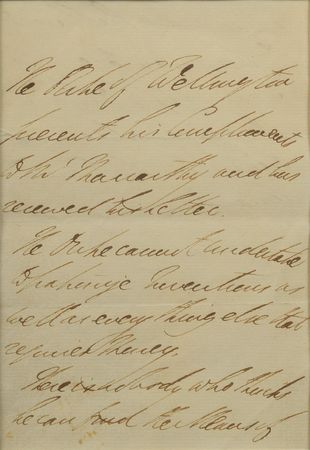 The Duke of Wellington
presents his Compliments
to Mr and has
received his letter.
The Duke cannot undertake
to patronize Inventions as
well as every thing else that
requires Money.
There is nobody who thinks
he can find the Means of